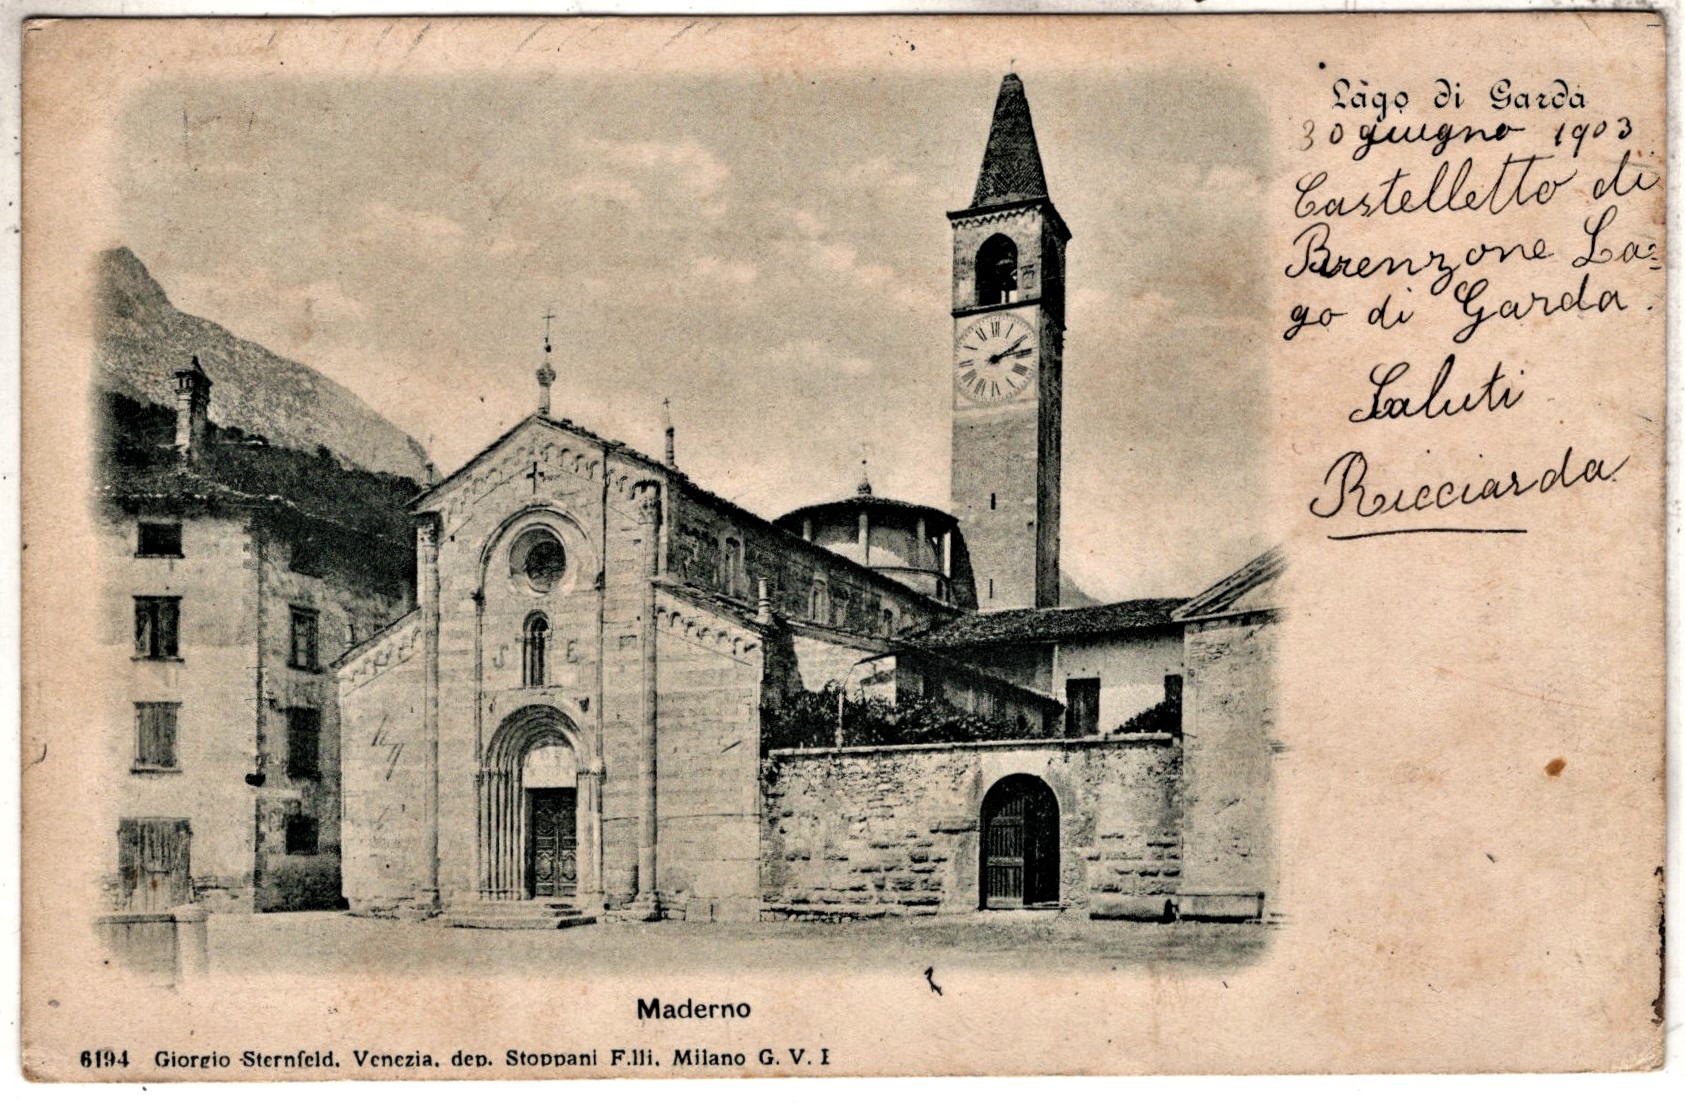 Lago di Garda
30 giugno 1903
Castelletto di
Brenzone La=
go di Garda.
Saluti
Ricciarda
Maderno
6194 Giorgio Sternfeld, Venezia, dep. Stoppani F.lli, Milano G. V. I